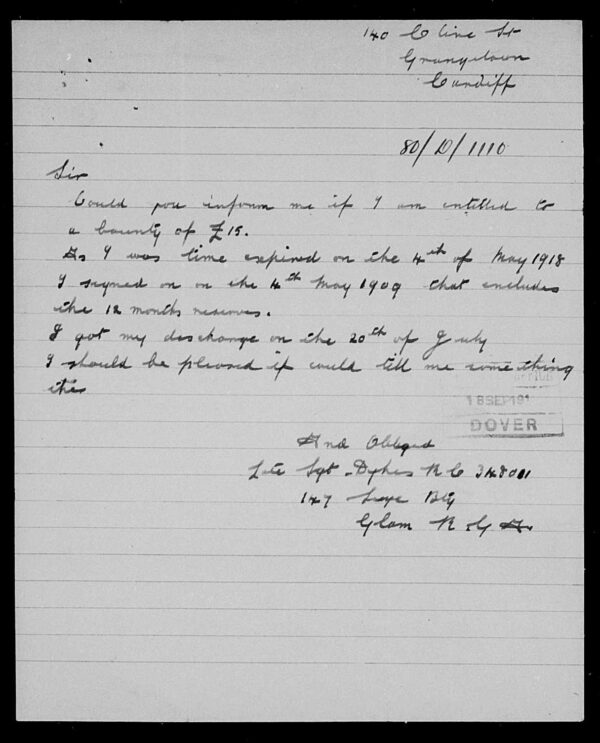 140 Clive St
Grangetown
Cardiff
80/D/1110
Sir
Could you inform me if I am entitled to
a bounty of £15.
As I was time expired on the 4th of May 1918
I signed on on the 4th May 1909 that includes
the 12 months reserves.
I got my discharge on the 20th of July
I should be pleased if could tell me something
OFFICE
18 SEP 191
DOVER
And Obliged
Late Sgt. Dykes R C 348011
147 Siege Bty
Glam R. G A.